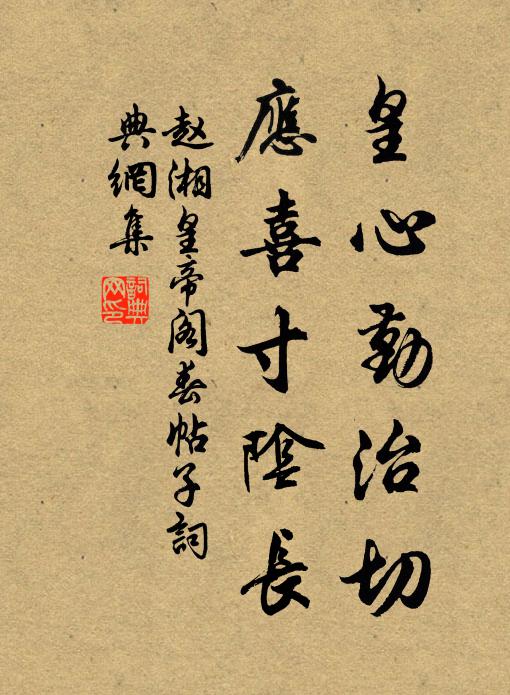 皇心勤治切
應喜寸陰長
赵湘皇帝阁春帖子詞
典網集
詞典網印